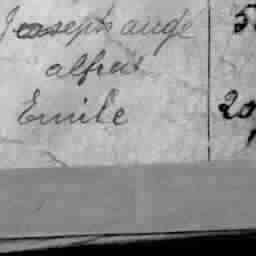 Joaseph ange 5
alfred
Emile 20